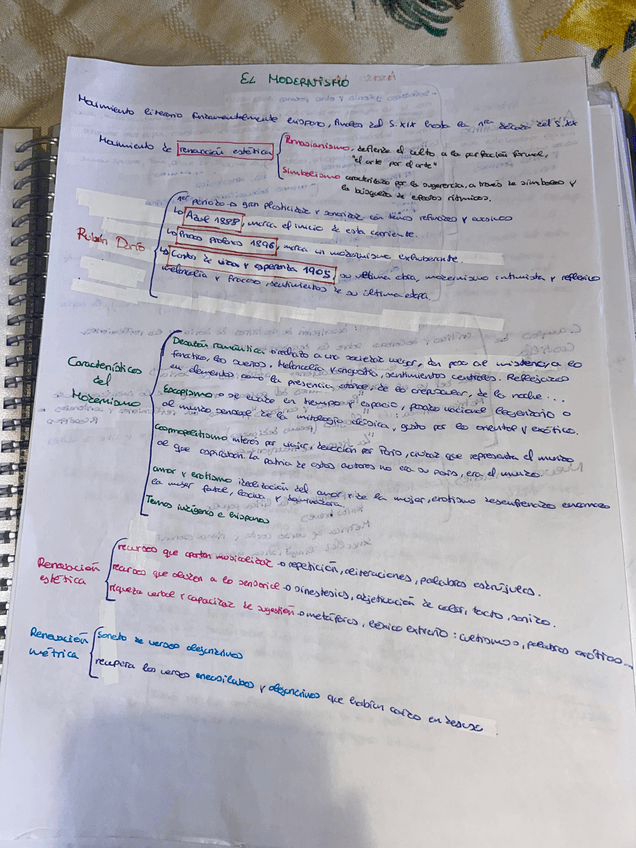 EL MODERNISMO
Movimiento literario fundamentalmente hispano, finales del S.XIX hasta la 1era década del S.XX
Movimiento de renovación estética
Parnasianismo, defiende el culto a la perfección formal,
"el arte por el arte"
Simbolismo caracterizado por la sugerencia, a través de símbolos y
la búsqueda de efectos rítmicos.
Rubén Darío
1er periodo → gran plasticidad y sonoridad con léxico refinado y exótico
↳ Azul 1888, marca el inicio de esta corriente.
↳ Prosas profanas 1896, marca un modernismo exhuberante.
↳ Cantos de vida y esperanza 1905, su última obra, modernismo intimista y reflexivo
melancolía y fracaso, sentimientos de su última etapa.
Características del Modernismo
Desazón romántica → rechazo a una sociedad vulgar, dan paso al misterio, lo
fanático, los sueños. Melancolía y angustia, sentimientos centrales. Reflejados
en elementos como la presencia otoñal, de lo crepuscular, de la noche...
Escapismo → se evade en tiempo y espacio, pasado nacional legendario o
al mundo sensual de la mitología clásica, gusto por lo oriental y exótico.
Cosmopolitismo interés por viajar, devoción por París, ciudad que representa el mundo
al que aspiraban. La patria de estos autores no era su país, era el mundo.
amor y erotismo idealización del amor y de la mujer, erotismo desenfrenado encarnado
la mujer fatal, lasciva y
Temas indígena e hispanos
Renovación estética
recursos que aportan musicalidad → repetición, aliteraciones, palabras esdrújulas.
recursos que aluden a lo sensorial → sinestesias, adjetivación de color, tacto, sonido.
riqueza verbal y capacidad de sugestión → metáforas, léxico extraño: cultismos, palabras exóticas...
Renovación métrica
soneto de versos alejandrinos
recupera los versos eneasílabos y alejandrinos que habían caído en desuso.